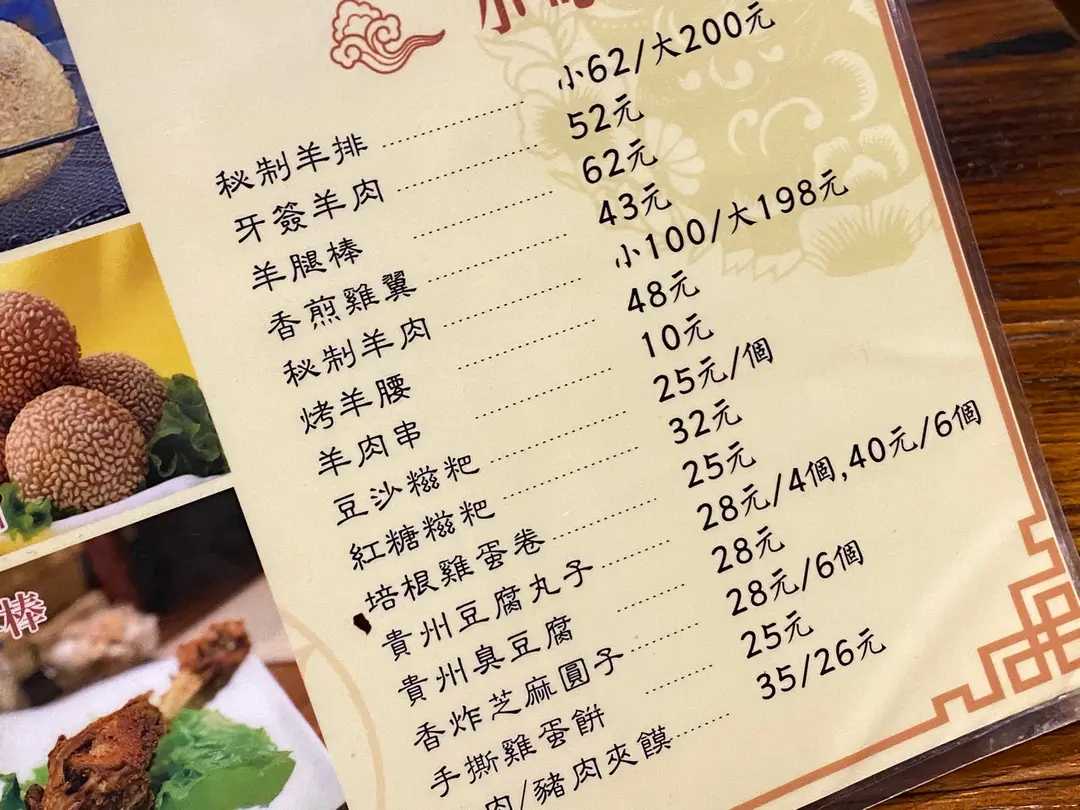 小
秘制羊排 小62/大200元
牙簽羊肉 52元
羊腿棒 62元
香煎雞翼 43元
秘制羊肉 小100/大198元
烤羊腰 48元
羊肉串 10元
豆沙糍粑 25元/個
紅糖糍粑 32元
培根雞蛋卷 25元
貴州豆腐丸子 28元/4個,40元/6個
貴州臭豆腐 28元
香炸芝麻圓子 28元/6個
手撕雞蛋餅 25元
肉/豬肉夾饃 35/26元
棒